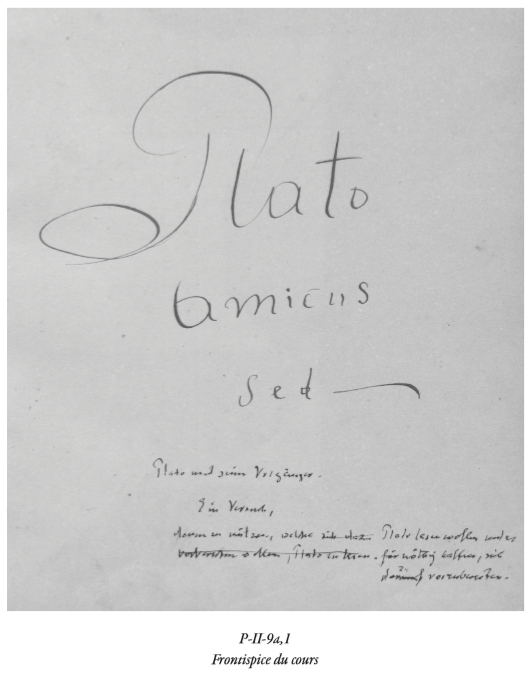 Plato
amicus
sed —
Plato und seine Vorgänger.
Ein Versuch,
denen zu nützen, welche sich dazu Plato lesen wollen und es
vorbereiten wollen, Plato zu lesen. für nötig halten, sich
darauf vorzubereiten.
P-II-9a,1
Frontispice du cours